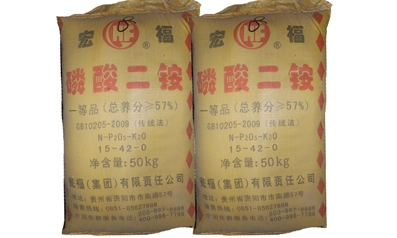 宏 福
磷酸二铵
一等品（总养分≥57%）
GB10205-2009（传统法）
N-P₂O₅-K₂O
15-42-0
净含量:50kg
宏福（集团）有限责任公司
宏 福
磷酸二铵
一等品（总养分≥57%）
GB10205-2009（传统法）
N-P₂O₅-K₂O
15-42-0
净含量:50kg
宏福（集团）有限责任公司